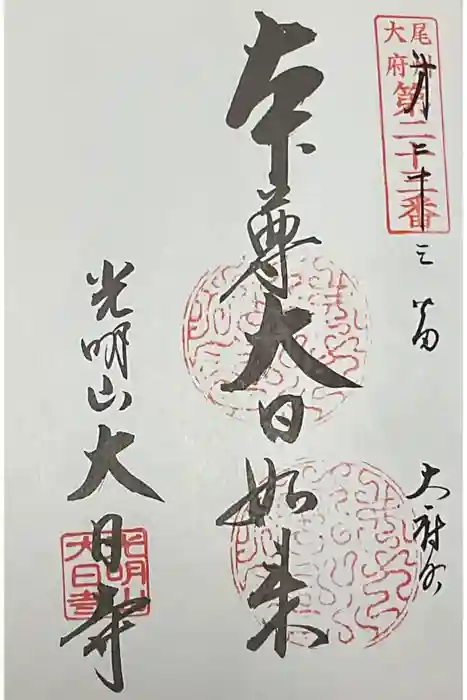 尾州
大府
第二十三番
二十三番
大府
本尊大日如来
光明山大日寺
光明山
大日寺